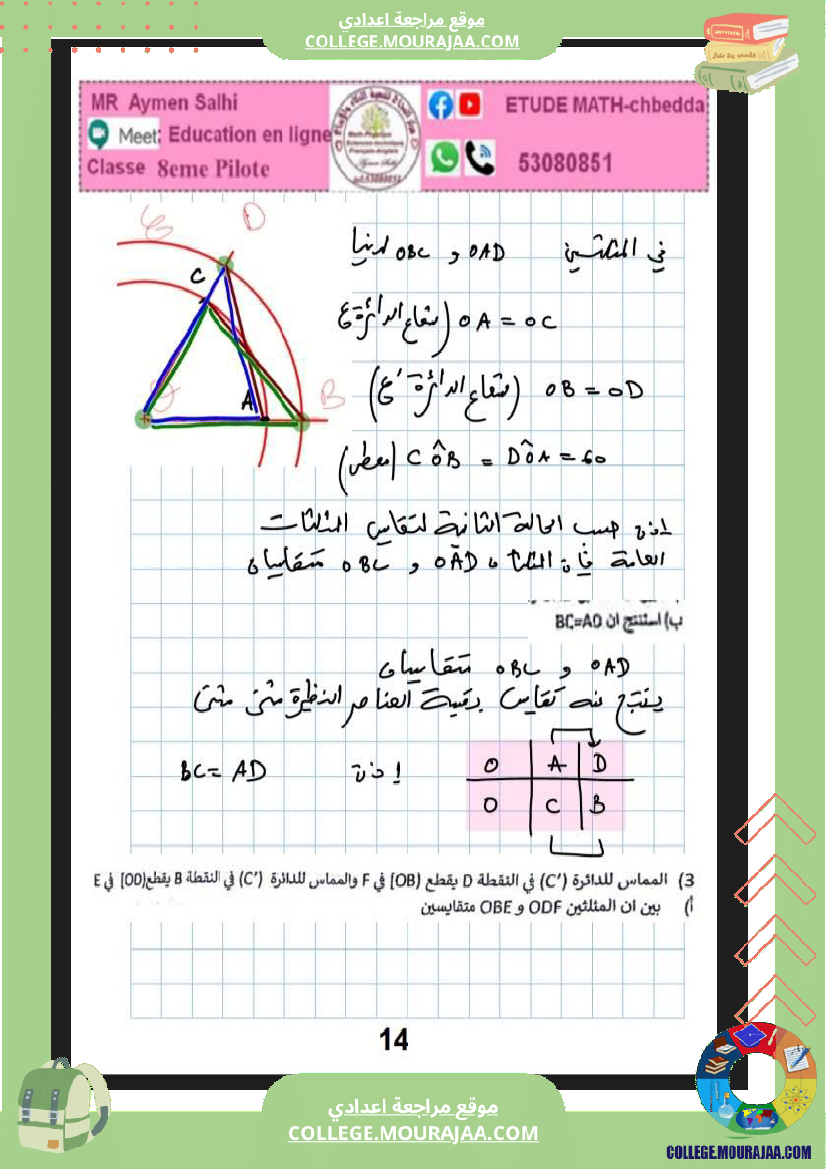 موقع مراجعة اعدادي
COLLEGE.MOURAJAA.COM
MR Aymen Salhi
Meet: Education en ligne
Classe 8eme Pilote
ETUDE MATH-chbedda
53080851
في المثلثين OAD و OBC لدينا
OA = OC (شعاع الدائرة ع)
OB = OD (شعاع الدائرة ع')
CÔB = DÔA = 60 (معطى)
اذن حسب الحالة الثانية لتقايس المثلثات
العامة فإن المثلثان OAD و OBC متقايسان
ب) استنتج ان BC=AD
OAD و OBC متقايسان
ينتج عنه تقايس بقية العناصر النظيرة مثنى مثنى
O A D
O C B
إذن BC = AD
C
D
A
B
3) المماس للدائرة (C') في النقطة D يقطع [OB) في F والمماس للدائرة (C') في النقطة B يقطع [OD) في E
أ) بين ان المثلثين ODF و OBE متقايسين
14
موقع مراجعة اعدادي
COLLEGE.MOURAJAA.COM
COLLEGE.MOURAJAA.COM